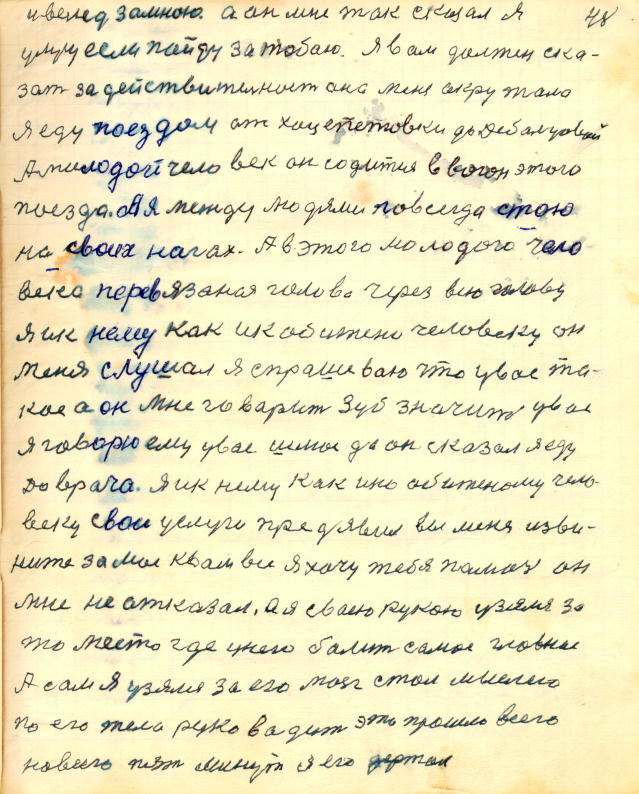 48
и вслед за мною. а он мне так сказал я
умру если пайду за тобаю. я вам должен ска-
зат за действителност она меня окружала
я еду поездом от хацепетовки до Дебалцовой
А молодой человек он содится в вогон этого
поезда. А я между людями повсегда стою
на своих нагах. А в этого молодого чело
века перевязаная голова через всю голову
я ик нему как ик обижено человеку он
меня слушал я спрашеваю что увас та-
кое а он мне говарит зуб значит увас
я говорю ему увас да он сказал я еду
до врача. я ик нему как ико обиженому чело-
веку свои услуги предявил вы меня изви-
ните за мое квам все я хочу тебя памоч он
мне не отказал. а я своею рукою узялся за
то место где унего балит самое главное
А сам я узялся за его мозг стал мыслею
по его тела руковадит это прошло всего
навсего пят минут я его держал